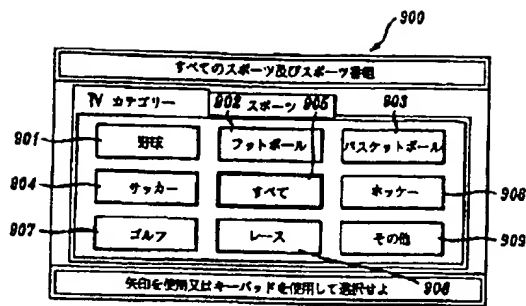 900
すべてのスポーツ及びスポーツ番組
TV カテゴリー 902 スポーツ 905 903
901 野球 フットボール バスケットボール
904 サッカー すべて ホッケー 906
907 ゴルフ レース その他 909
908
矢印を使用又はキーパッドを使用して選択せよ